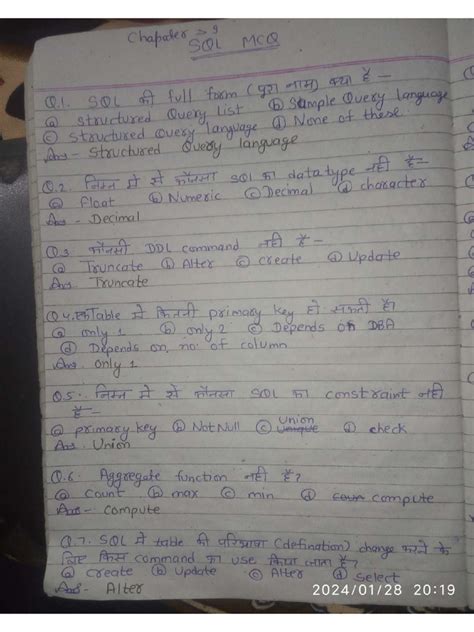 Chapater => 9
SQL MCQ
Q.1. SQL की full form (पुरा नाम) क्या है -
ⓐ Structured Query List ⓑ Simple Query language
ⓒ Structured Query language ⓓ None of these.
Ans - Structured Query language
Q.2. निम्न मे से कौनसा SQL का datatype नही है -
ⓐ float ⓑ Numeric ⓒ Decimal ⓓ character
Ans - Decimal
Q.3. कौनसी DDL command नही है -
ⓐ Truncate ⓑ Alter ⓒ create ⓓ Update
Ans. Truncate
Q.4. एक table मे कितनी primary key हो सकती है?
ⓐ only 1 ⓑ only 2 ⓒ Depends on DBA
ⓓ Depends on no. of column
Ans. only 1
Q.5.. निम्न मे से कौनसा SQL का constraint नही
है -
ⓐ primary key ⓑ Not Null ⓒ Union ⓓ check
Ans. Union
Q.6. Aggregate function नही है?
ⓐ Count ⓑ max ⓒ min ⓓ compute
Ans - Compute
Q.7. SQL मे table की परिभाषा (defination) change करने के
लिए किस command का use किया जाता है?
ⓐ Create ⓑ Update ⓒ Alter ⓓ select
Ans - Alter
2024/01/28 20:19